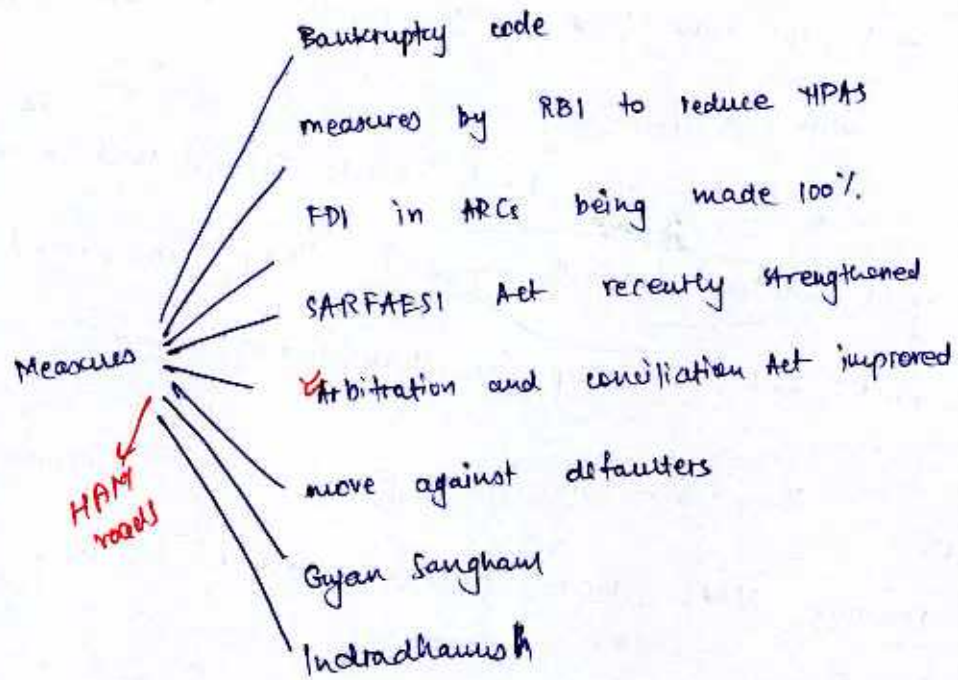 Bankruptcy code
measures by RBI to reduce NPAs
FDI in ARCs being made 100%.
SARFAESI Act recently strengthened
Measures
Arbitration and conciliation Act improved
HAM
roads
move against defaulters
Gyan Sangham
Indradhanush